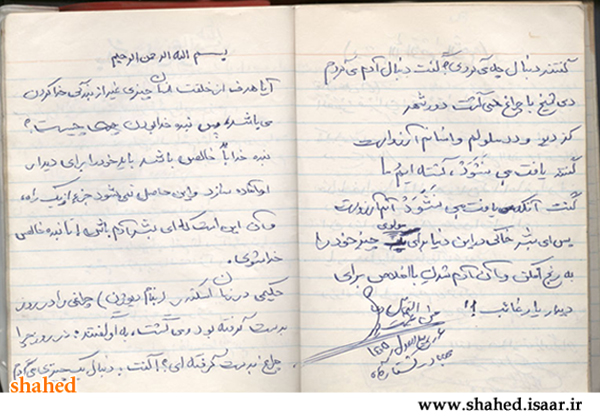 بسم الله الرحمن الرحیم
آیا هدف از خلقت انسان چیزی غیر از بندگی خدا کردن
می باشد، پس بنده خدا بودن چیست؟
بنده خدا خالص باشد باید خود را برای دیدار
او آماده سازد و این حاصل نمی شود جز از یک راه،
و آن این است که ای بشر آدم باشی تا بنده خالص
خدا شوی.
حکیمی در زمان اسکندر (بنام دیوژن) چراغی را در روز
بدست گرفته بود و می گشت، به او گفتند: در روز چرا
چراغ بدست گرفته ای؟ گفت به دنبال یک چیزی می گردم
گفتند دنبال چه می گردی؟ گفت دنبال آدم می گردم
دی شیخ با چراغ همی گشت دور شهر
کز دیو و دد ملولم و انسانم آرزوست
گفتند یافت می نشود، گشته ایم ما
گفت آنکه یافت می نشود آنم آرزوست
مولوی
پس ای بشر خاکی در این دنیا برای چیز خود را
به رنج افکن و آن آدم شدن با اخلاص برای
دیدار یار غائب !!
shahed
www.shahed.isaar.ir